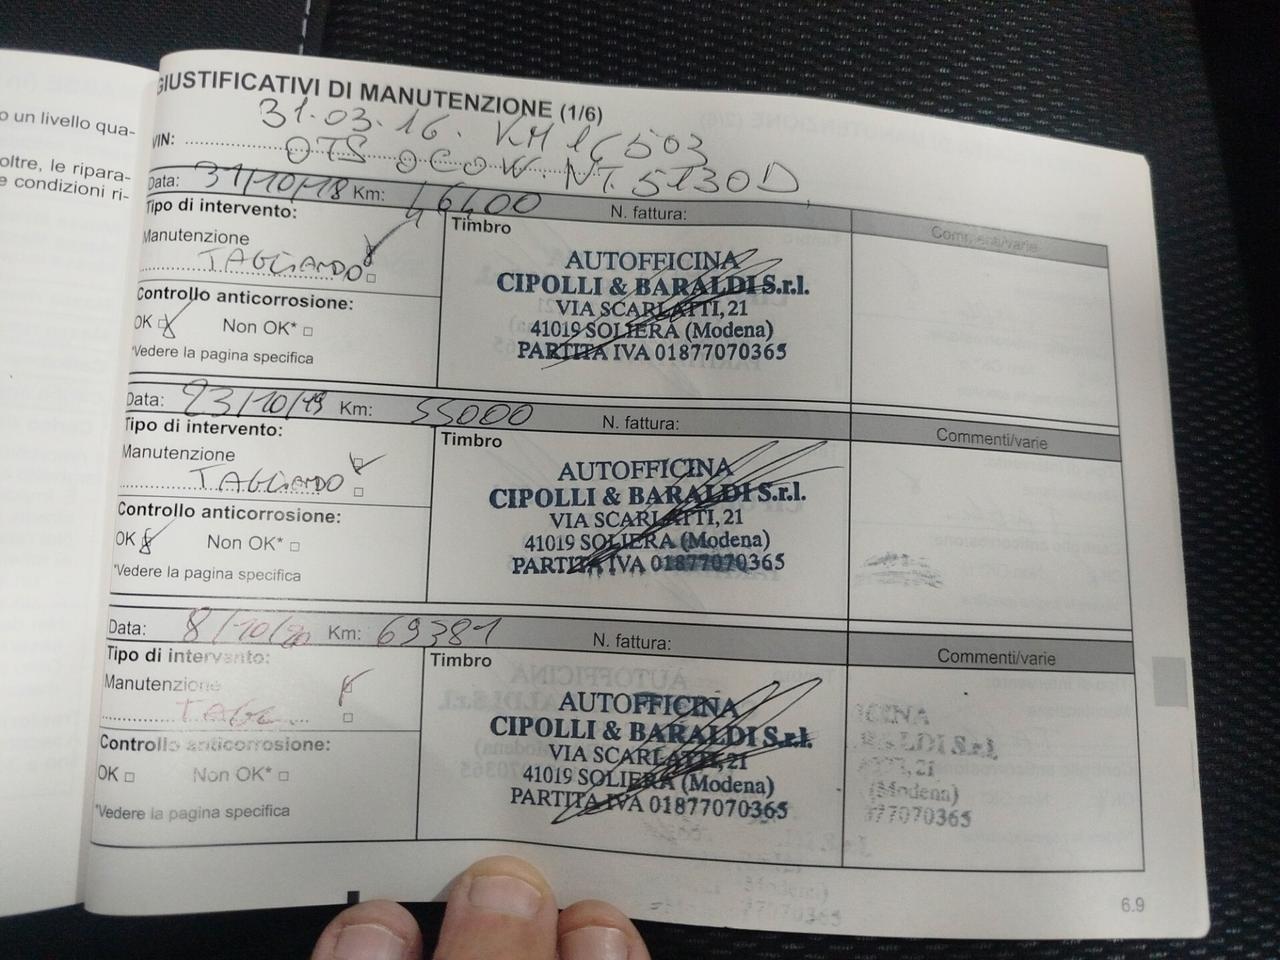 o un livello qua-
oltre, le ripara-
e condizioni ri-
GIUSTIFICATIVI DI MANUTENZIONE (1/6)
31.03.16. KM 16503
VIN:
Data: 31/10/18 Km: 46400 N. fattura:
Tipo di intervento:
Timbro
Commenti/varie
Manutenzione
TAGLIANDO
Controllo anticorrosione:
OK Non OK*
*Vedere la pagina specifica
AUTOFFICINA
CIPOLLI & BARALDI S.r.l.
VIA SCARLATTI, 21
41019 SOLIERA (Modena)
PARTITA IVA 01877070365
Data: 23/10/19 Km: 55000 N. fattura:
Tipo di intervento:
Timbro
Commenti/varie
Manutenzione
TAGLIANDO
Controllo anticorrosione:
OK Non OK*
*Vedere la pagina specifica
AUTOFFICINA
CIPOLLI & BARALDI S.r.l.
VIA SCARLATTI, 21
41019 SOLIERA (Modena)
PARTITA IVA 01877070365
Data: 8/10/20 Km: 69381 N. fattura:
Tipo di intervento:
Timbro
Commenti/varie
Manutenzione
TAGL.
Controllo anticorrosione:
OK Non OK*
*Vedere la pagina specifica
AUTOFFICINA
CIPOLLI & BARALDI S.r.l.
VIA SCARLATTI, 21
41019 SOLIERA (Modena)
PARTITA IVA 01877070365
ICINA
RALDI S.r.l.
21
(Modena)
377070365
6.9